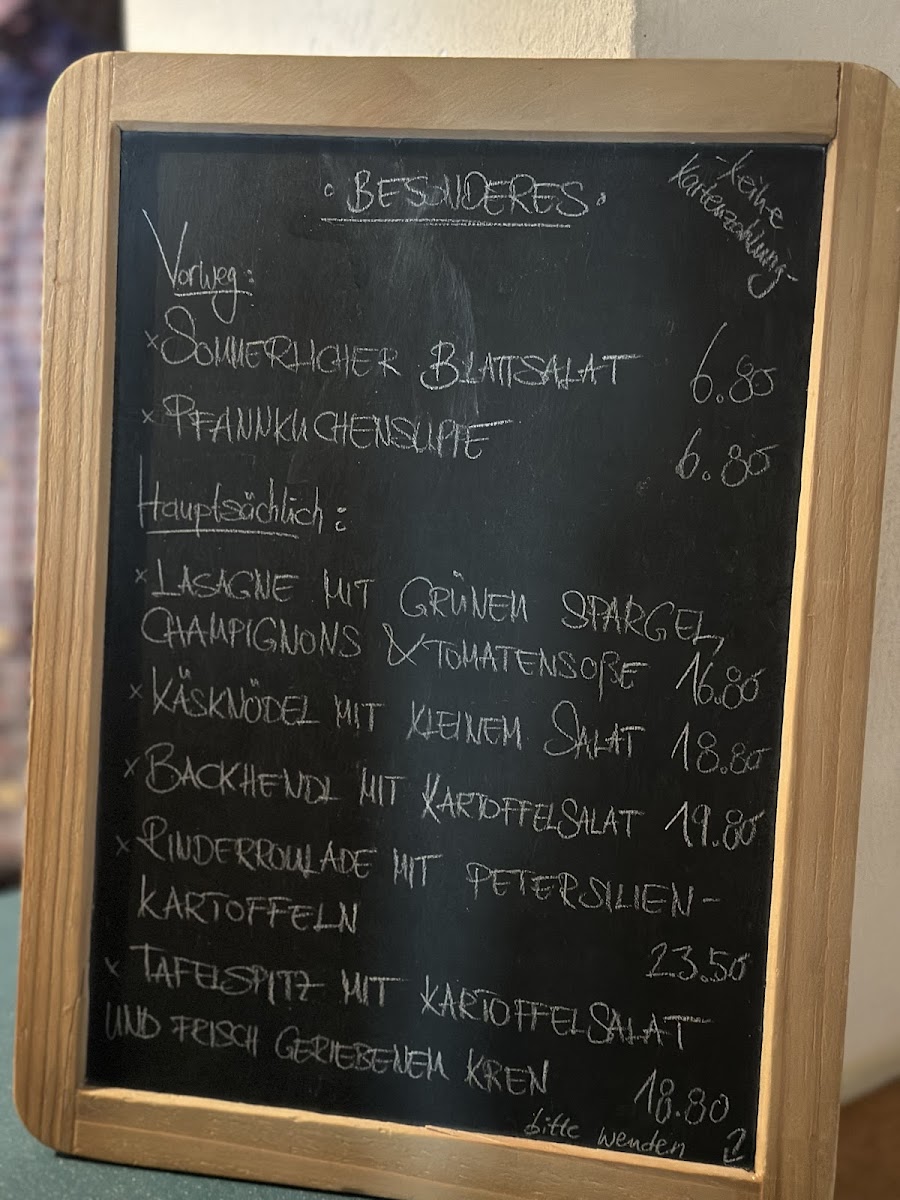 · BESONDERES ·
keine
Kartenzahlung
Vorweg:
× SOMMERLICHER BLATTSALAT 6.80
× PFANNKUCHENSUPPE 6.80
Hauptsächlich:
× LASAGNE MIT GRÜNEM SPARGEL,
CHAMPIGNONS & TOMATENSOßE 16.80
× KÄSKNÖDEL MIT KLEINEM SALAT 18.80
× BACKHENDL MIT KARTOFFELSALAT 19.80
× RINDERROULADE MIT PETERSILIEN-
KARTOFFELN 23.50
× TAFELSPITZ MIT KARTOFFELSALAT
UND FRISCH GERIEBENEM KREN 18.80
bitte wenden